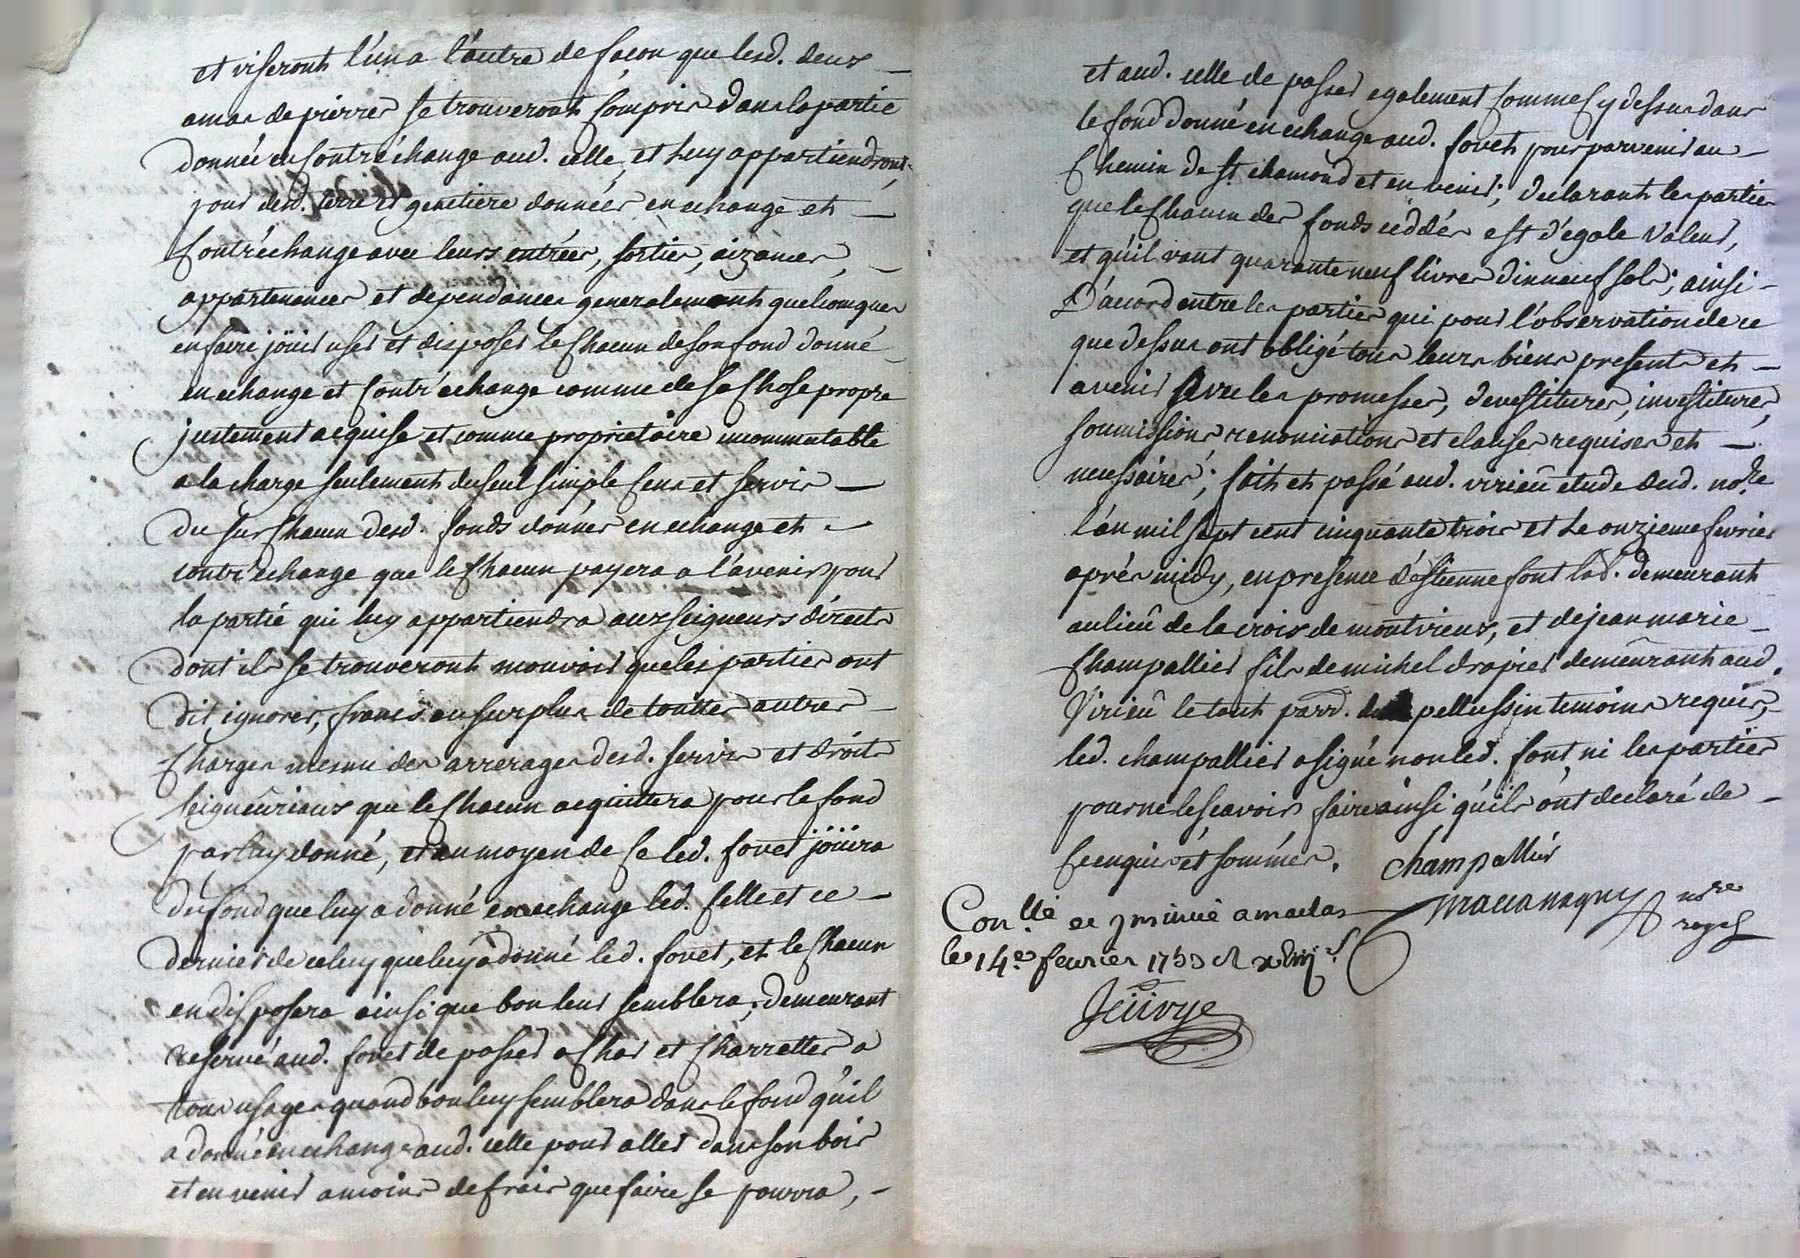 et viseront l'un a l'autre de façon que lesd. deux
amas de pierres se trouveront compris dans la partie
donnée en contr'échange aud. celle, et luy appartiendront
pour desd. terre et genetiere données en echange et
contr'échange avec leurs entrées, sorties, aizances,
appartenances et dependances generalement quelconques
en faire joüir user et disposer le chacun de son fond donné
en echange et contr'echange comme de sa chose propre
justement acquise et comme proprietaire incommutable
a la charge seulement du seul simple cens et servis
du sur chacun desd. fonds donnés en echange et
contr'echange que le chacun payera a l'avenir pour
la partie qui luy appartiendra aux seigneurs directs
dont ils se trouveront mouvoir que les parties ont
dit ignorer, francs au surplus de toutes autres
charges mesme des arrerages desd. servis et droits
seigneuriaux que le chacun acquittera pour le fond
par luy donné, et au moyen de ce led. fovet joüira
du fond que luy a donné en echange led. selle et ce
dernier de celuy que luy a donné led. fovet, et le chacun
en disposera ainsi que bon leur semblera, demeurant
reservé aud. fovet de passer a char et charrettes a
tous usages quand bon luy semblera dans le fond qu'il
a donné en echange aud. celle pour aller dans son bois
et en venir a moins de frais que faire se pourra,
et aud. celle de passer egalement comme cy dessus dans
le fond donné en echange aud. fovet pour parvenir au
chemin de st. chamond et en venir; declarant les parties
que le chacun des fonds ceddés est d'égale valeur,
et qu'il vaut quarante neuf livres dixneuf sols; ainsi
D'acord entre les parties qui pour l'observation de ce
que dessus ont obligé tous leurs biens presents et
avenir avec les promesses, devestitures, investitures,
soumissions renonciations et clauses requises et
necessaires; fait et passé aud. virieû etude dud. no.re
l'an mil sept cent cinquante trois et le onzieme fevrier
aprés midy, en presence d'éstienne font lad. demeurant
au lieû de la croix de montvieux, et de jean marie
champallier fils de michel drapier demeûrant aud.
Virieû le tout parr. de pellussin temoins requis,
led. champallier a signé non led. font ni les parties
pour ne le scavoir faire ainsi qu'ils ont declaré de
ce enquis et sommés. champallier
Con.llé et insinué a maclas
le 14.e feurier 1753